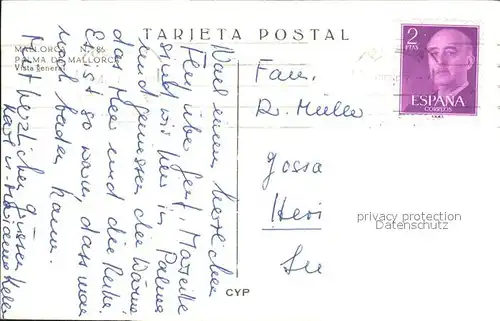 TARJETA POSTAL
MALLORCA N.º 86
PALMA DE MALLORCA
Vista general
Nach einem herrlichen
Flug über Genf, Marseille
sind wir hier in Palma
und geniessen die Wärme,
das Meer und die Ruhe.
Es ist so warm, dass man
noch baden kann.
Mit herzlichen Grüssen
2 PTAS
ESPAÑA
CORREOS
Fam.
R. Müller
Gossa
privacy protection
Datenschutz
CYP